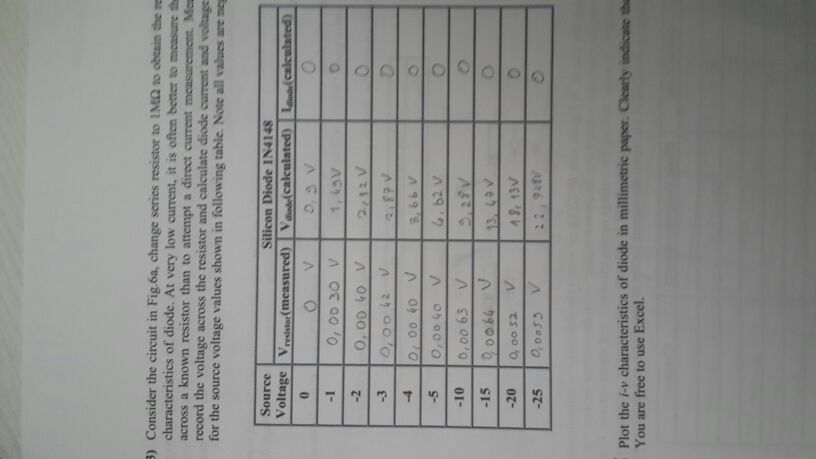 3) Consider the circuit in Fig.6a, change series resistor to 1MΩ to obtain the
characteristics of diode. At very low current, it is often better to measure
across a known resistor than to attempt a direct current measurement.
record the voltage across the resistor and calculate diode current and voltage
for the source voltage values shown in following table. Note all values are
Silicon Diode 1N4148
Source Voltage Vresistor(measured) Vdiode(calculated) Idiode(calculated)
0 0 V 0,9 V 0
-1 0,0030 V 1,49V 0
-2 0,0040 V 2,12 V 0
-3 0,0042 V 2,87 V 0
-4 0,0040 V 3,66 V 0
-5 0,0040 V 4,62 V 0
-10 0,0063 V 9,28 V 0
-15 0,0064 V 13,47V 0
-20 0,0052 V 18,13V 0
-25 0,0053 V 0
Plot the i-v characteristics of diode in millimetric paper. Clearly indicate
You are free to use Excel.